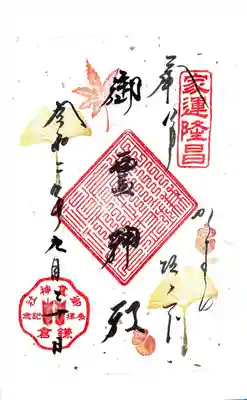 家運隆昌
奉拝
かまくら 坂ノ下
御霊神社
令和二年九月
御霊神社
参拝記念
鎌倉